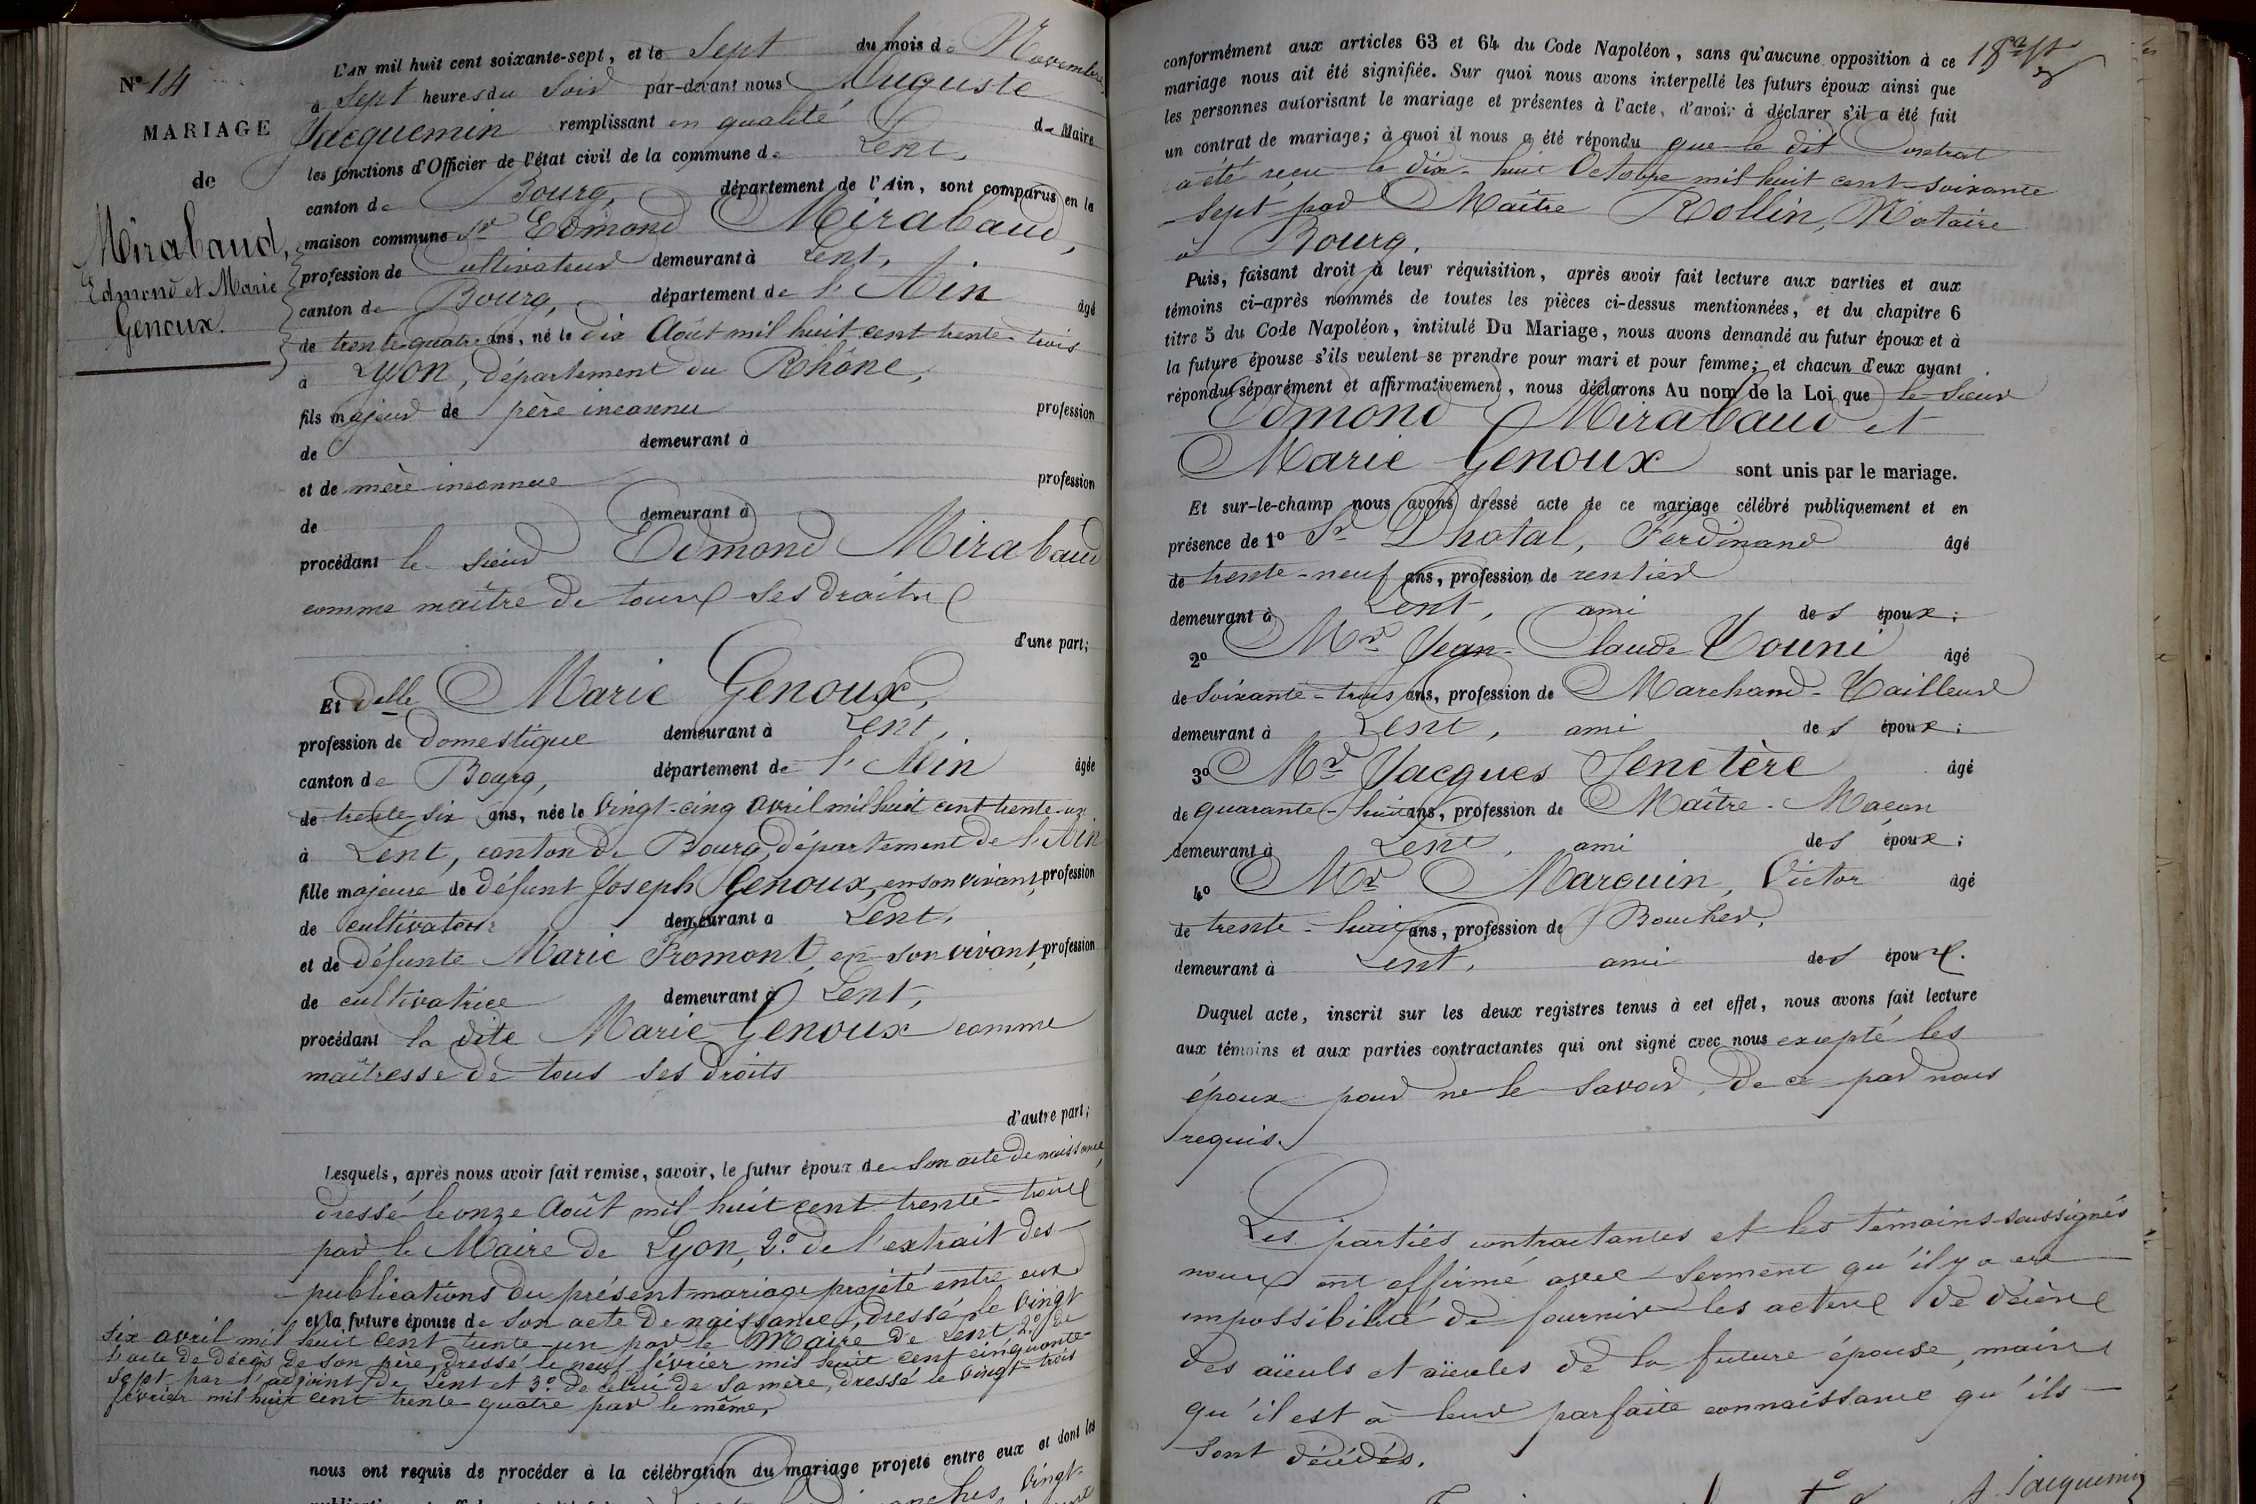 N° 14
MARIAGE
de
Mirabaud,
Edmond et Marie
Genoux.
L'AN mil huit cent soixante-sept, et le Sept du mois de Novembre
à Sept heures du Soir par-devant nous Auguste
Jacquemin remplissant en qualité de Maire
les fonctions d'Officier de l'état civil de la commune de Lent,
canton de Bourg, département de l'Ain, sont comparus en la
maison commune Sr Edmond Mirabaud,
profession de Cultivateur demeurant à Lent,
canton de Bourg, département de l'Ain âgé
de trente-quatre ans, né le dix Août mil huit cent trente-trois
à Lyon, département du Rhône,
fils majeur de père inconnu profession
de demeurant à
et de mère inconnue profession
de demeurant à
procédant le sieur Edmond Mirabaud
comme maître de tous ses droits
d'une part;
Et Delle Marie Genoux,
profession de Domestique demeurant à Lent,
canton de Bourg, département de l'Ain âgée
de trente-six ans, née le vingt-cinq avril mil huit cent trente-un
à Lent, canton de Bourg, département de l'Ain
fille majeure de défunt Joseph Genoux, en son vivant, profession
de cultivateur demeurant à Lent,
et de défunte Marie Fromont, en son vivant, profession
de cultivatrice demeurant à Lent,
procédant la dite Marie Genoux comme
maîtresse de tous ses droits
d'autre part;
Lesquels, après nous avoir fait remise, savoir, le futur époux de son acte de naissance,
dressé le onze Août mil huit cent trente-trois
par le Maire de Lyon, 2° de l'extrait des
publications du présent mariage projeté entre eux
et la future épouse de son acte de naissance, dressé le vingt
six avril mil huit cent trente-un par le Maire de Lent, 2° de
l'acte de décès de son père, dressé le neuf février mil huit cent cinquante-
sept par l'adjoint de Lent et 3° de celui de sa mère, dressé le vingt-trois
février mil huit cent trente-quatre par le même,
nous ont requis de procéder à la célébration du mariage projeté entre eux et dont les
vingt-
18e ft
conformément aux articles 63 et 64 du Code Napoléon, sans qu'aucune opposition à ce
mariage nous ait été signifiée. Sur quoi nous avons interpellé les futurs époux ainsi que
les personnes autorisant le mariage et présentes à l'acte, d'avoir à déclarer s'il a été fait
un contrat de mariage; à quoi il nous a été répondu que le dit Contrat
a été reçu le dix-huit Octobre mil huit cent soixante
sept par Maître Rollin, Notaire
à Bourg.
Puis, faisant droit à leur réquisition, après avoir fait lecture aux parties et aux
témoins ci-après nommés de toutes les pièces ci-dessus mentionnées, et du chapitre 6
titre 5 du Code Napoléon, intitulé Du Mariage, nous avons demandé au futur époux et à
la future épouse s'ils veulent se prendre pour mari et pour femme; et chacun d'eux ayant
répondu séparément et affirmativement, nous déclarons Au nom de la Loi que le sieur
Edmond Mirabaud et
Marie Genoux sont unis par le mariage.
Et sur-le-champ nous avons dressé acte de ce mariage célébré publiquement et en
présence de 1° Sr Dhotal, Ferdinand âgé
de trente-neuf ans, profession de rentier
demeurant à Lent, ami des époux;
2° Mr Jean-Claude Touni âgé
de soixante-trois ans, profession de Marchand-Tailleur
demeurant à Lent, ami des époux;
3° Mr Jacques Senetère âgé
de quarante-huit ans, profession de Maître-Maçon
demeurant à Lent, ami des époux;
4° Mr Marguin, Victor âgé
de trente-huit ans, profession de Boucher,
demeurant à Lent, ami des époux.
Duquel acte, inscrit sur les deux registres tenus à cet effet, nous avons fait lecture
aux témoins et aux parties contractantes qui ont signé avec nous excepté les
époux pour ne le savoir, De ce par nous
requis.
Les parties contractantes et les témoins soussignés
nous ont affirmé avec serment qu'il y a eu
impossibilité de fournir les actes de décès
des aïeuls et aïeules de la future épouse, mais
qu'il est à leur parfaite connaissance qu'ils
sont décédés.
A. Jacquemin